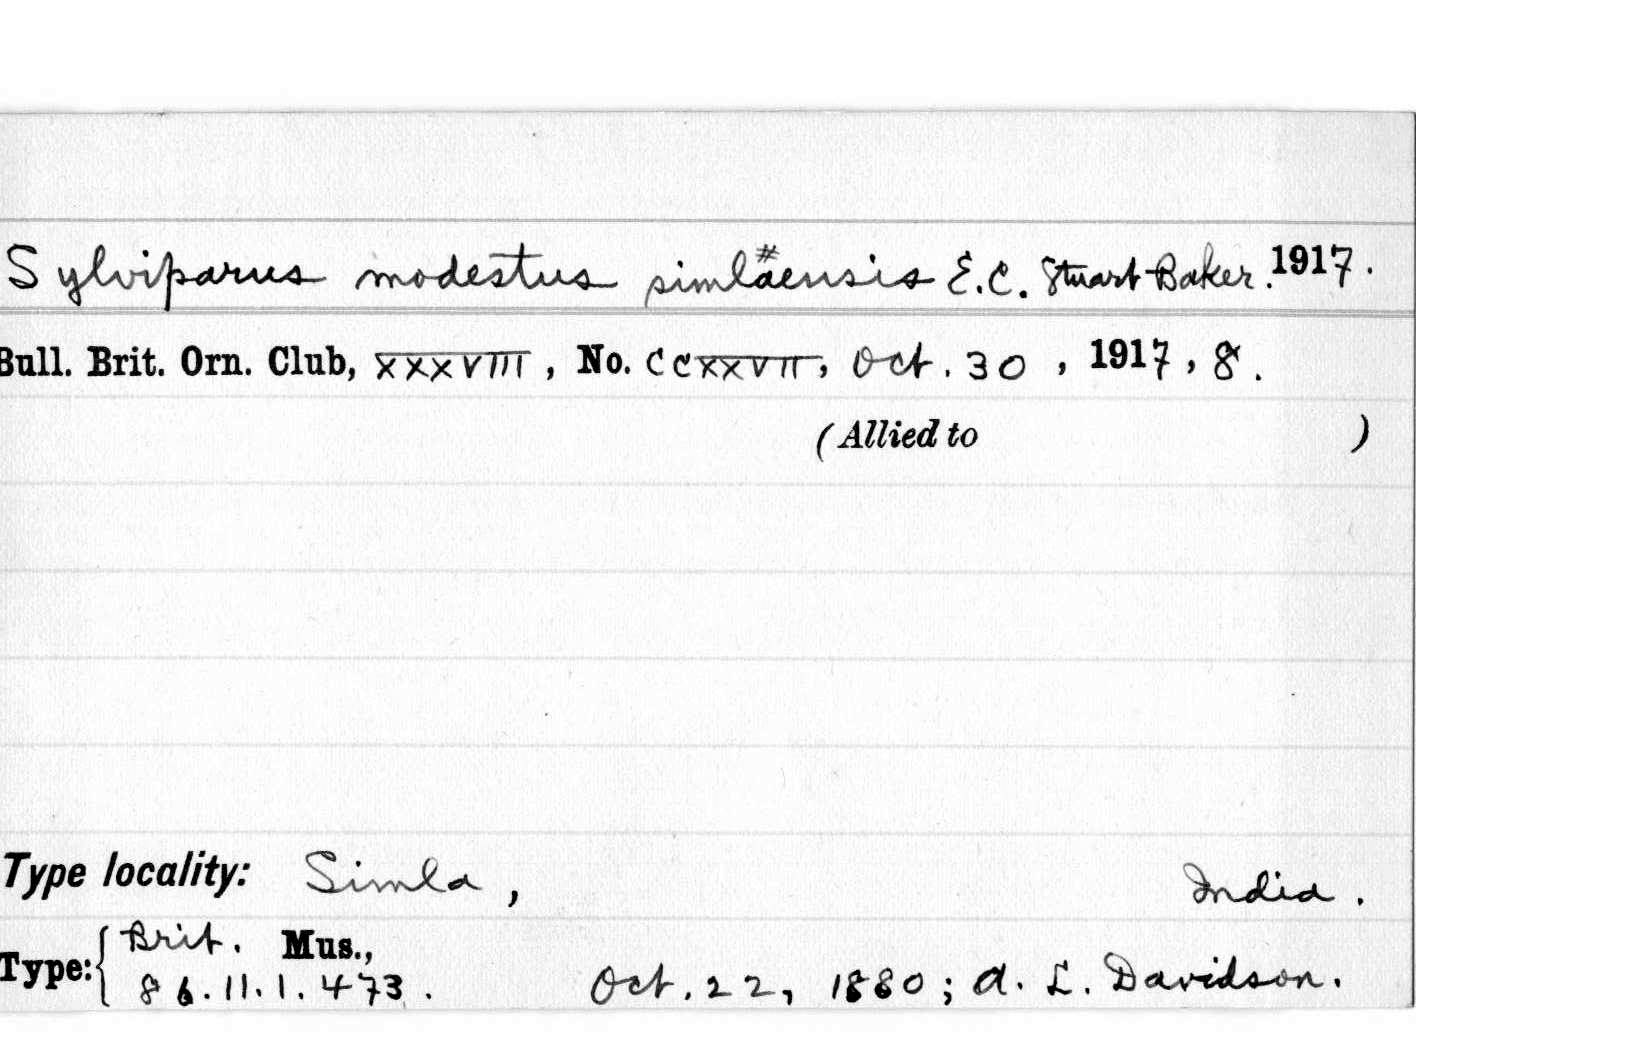 Sylviparus modestus simlaensis E.C. Stuart Baker. 1917.
Bull. Brit. Orn. Club, XXXVIII, No. CCXXVII, Oct. 30, 1917, 8.
(Allied to )
Type locality: Simla, India.
Type: { Brit. Mus.,
86.11.1.473. Oct. 22, 1880; A. L. Davidson.